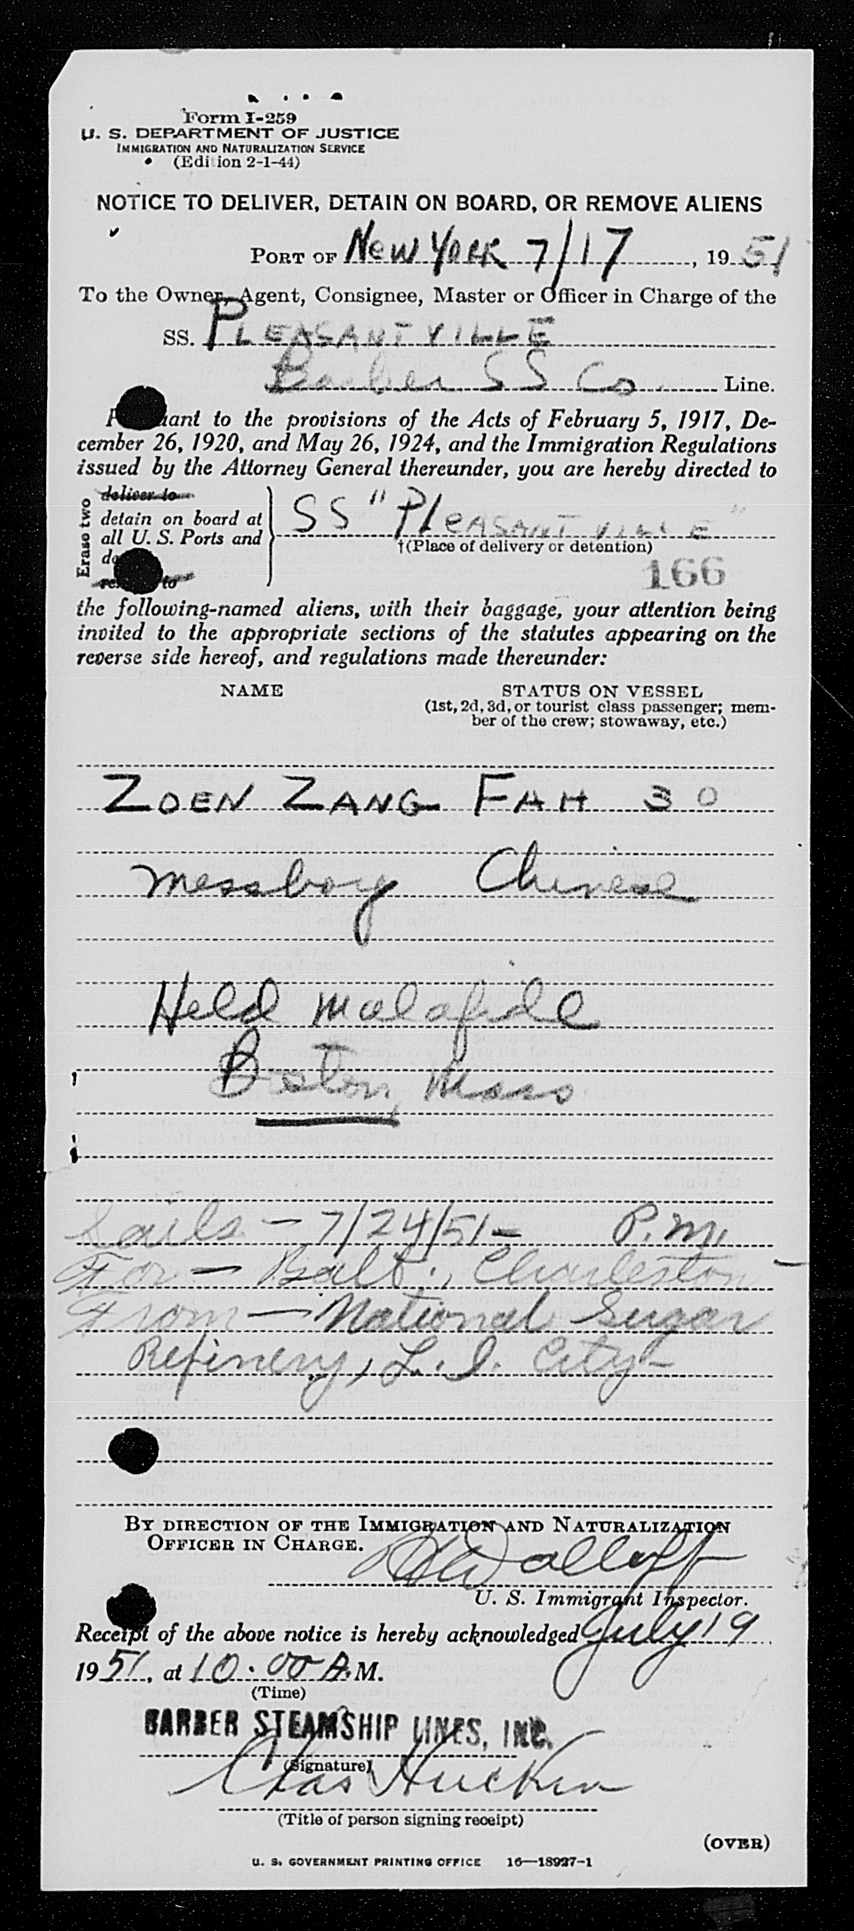 Form I-259
U. S. DEPARTMENT OF JUSTICE
IMMIGRATION AND NATURALIZATION SERVICE
(Edition 2-1-44)
NOTICE TO DELIVER, DETAIN ON BOARD, OR REMOVE ALIENS
PORT OF New York 7/17, 1951
To the Owner, Agent, Consignee, Master or Officer in Charge of the
SS. PLEASANTVILLE
Barber SS Co. Line.
Pursuant to the provisions of the Acts of February 5, 1917, De-
cember 26, 1920, and May 26, 1924, and the Immigration Regulations
issued by the Attorney General thereunder, you are hereby directed to
Erase two
deliver to
detain on board at
all U. S. Ports and
to
SS "PLEASANTVILLE"
†(Place of delivery or detention)
166
the following-named aliens, with their baggage, your attention being
invited to the appropriate sections of the statutes appearing on the
reverse side hereof, and regulations made thereunder:
NAME STATUS ON VESSEL
(1st, 2d, 3d, or tourist class passenger; mem-
ber of the crew; stowaway, etc.)
ZOEN ZANG FAH 30
Messboy Chinese
Held Malafide
Boston, Mass
Sails - 7/24/51 - P.M.
For - Balt., Charleston -
From - National Sugar
Refinery, L. I. City -
BY DIRECTION OF THE IMMIGRATION AND NATURALIZATION
OFFICER IN CHARGE.
U. S. Immigrant Inspector.
Receipt of the above notice is hereby acknowledged July 19
1951, at 10:00 A.M.
(Time)
BARBER STEAMSHIP LINES, INC.
(Signature)
Chas
(Title of person signing receipt)
(OVER)
U. S. GOVERNMENT PRINTING OFFICE 16—18927-1